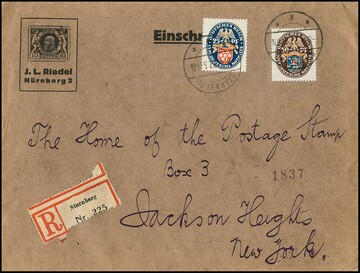 J. L. Riedel
Nürnberg 2
Einschr
DEUTSCHES REICH
25
DEUTSCHES REICH
The Home of the Postage Stamp
Box 3
1837
R
Starnberg
Nr. 225
Jackson Heights
New York.